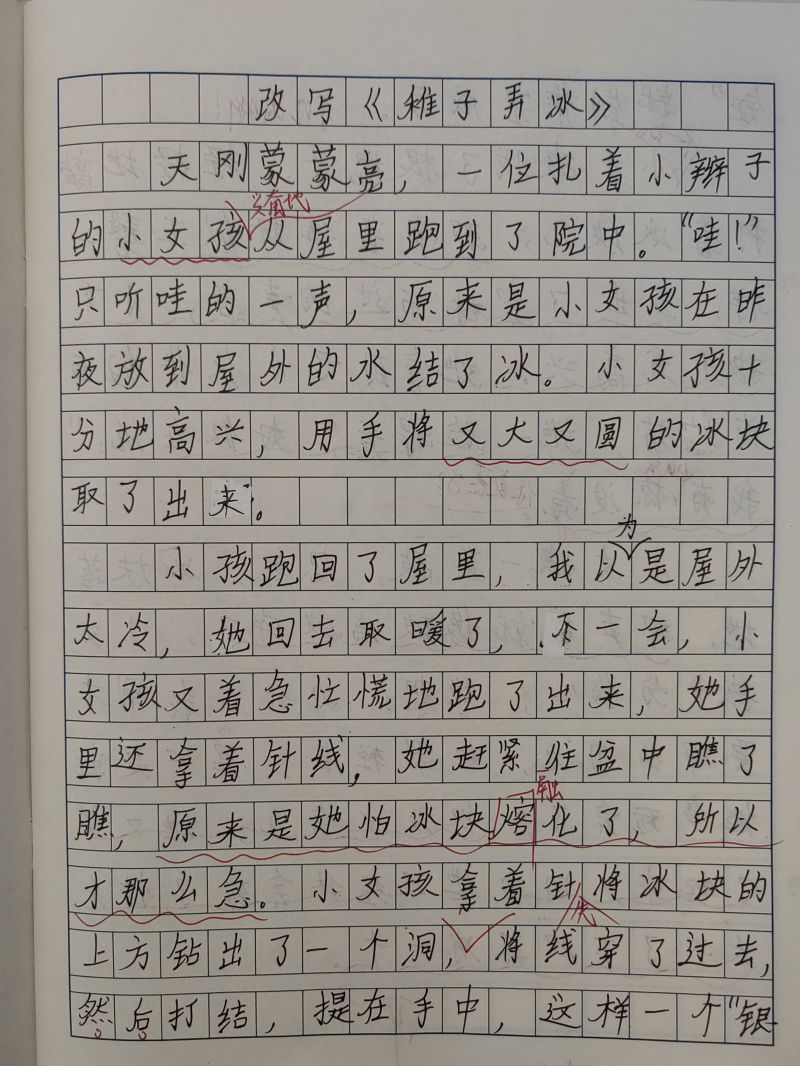 改写《稚子弄冰》
天刚蒙蒙亮，一位扎着小辫子
兴奋地
的小女孩从屋里跑到了院中。“哇！”
只听哇的一声，原来是小女孩在昨
夜放到屋外的水结了冰。小女孩十
分地高兴，用手将又大又圆的冰块
取了出来。
为
小孩跑回了屋里，我以是屋外
太冷，她回去取暖了，不一会，小
女孩又着急忙慌地跑了出来，她手
里还拿着针线，她赶紧往盆中瞧了
融
瞧，原来是她怕冰块熔化了，所以
才那么急。小女孩拿着针将冰块的
上方钻出了一个洞，将线穿了过去，
然后打结，提在手中，这样一个“银